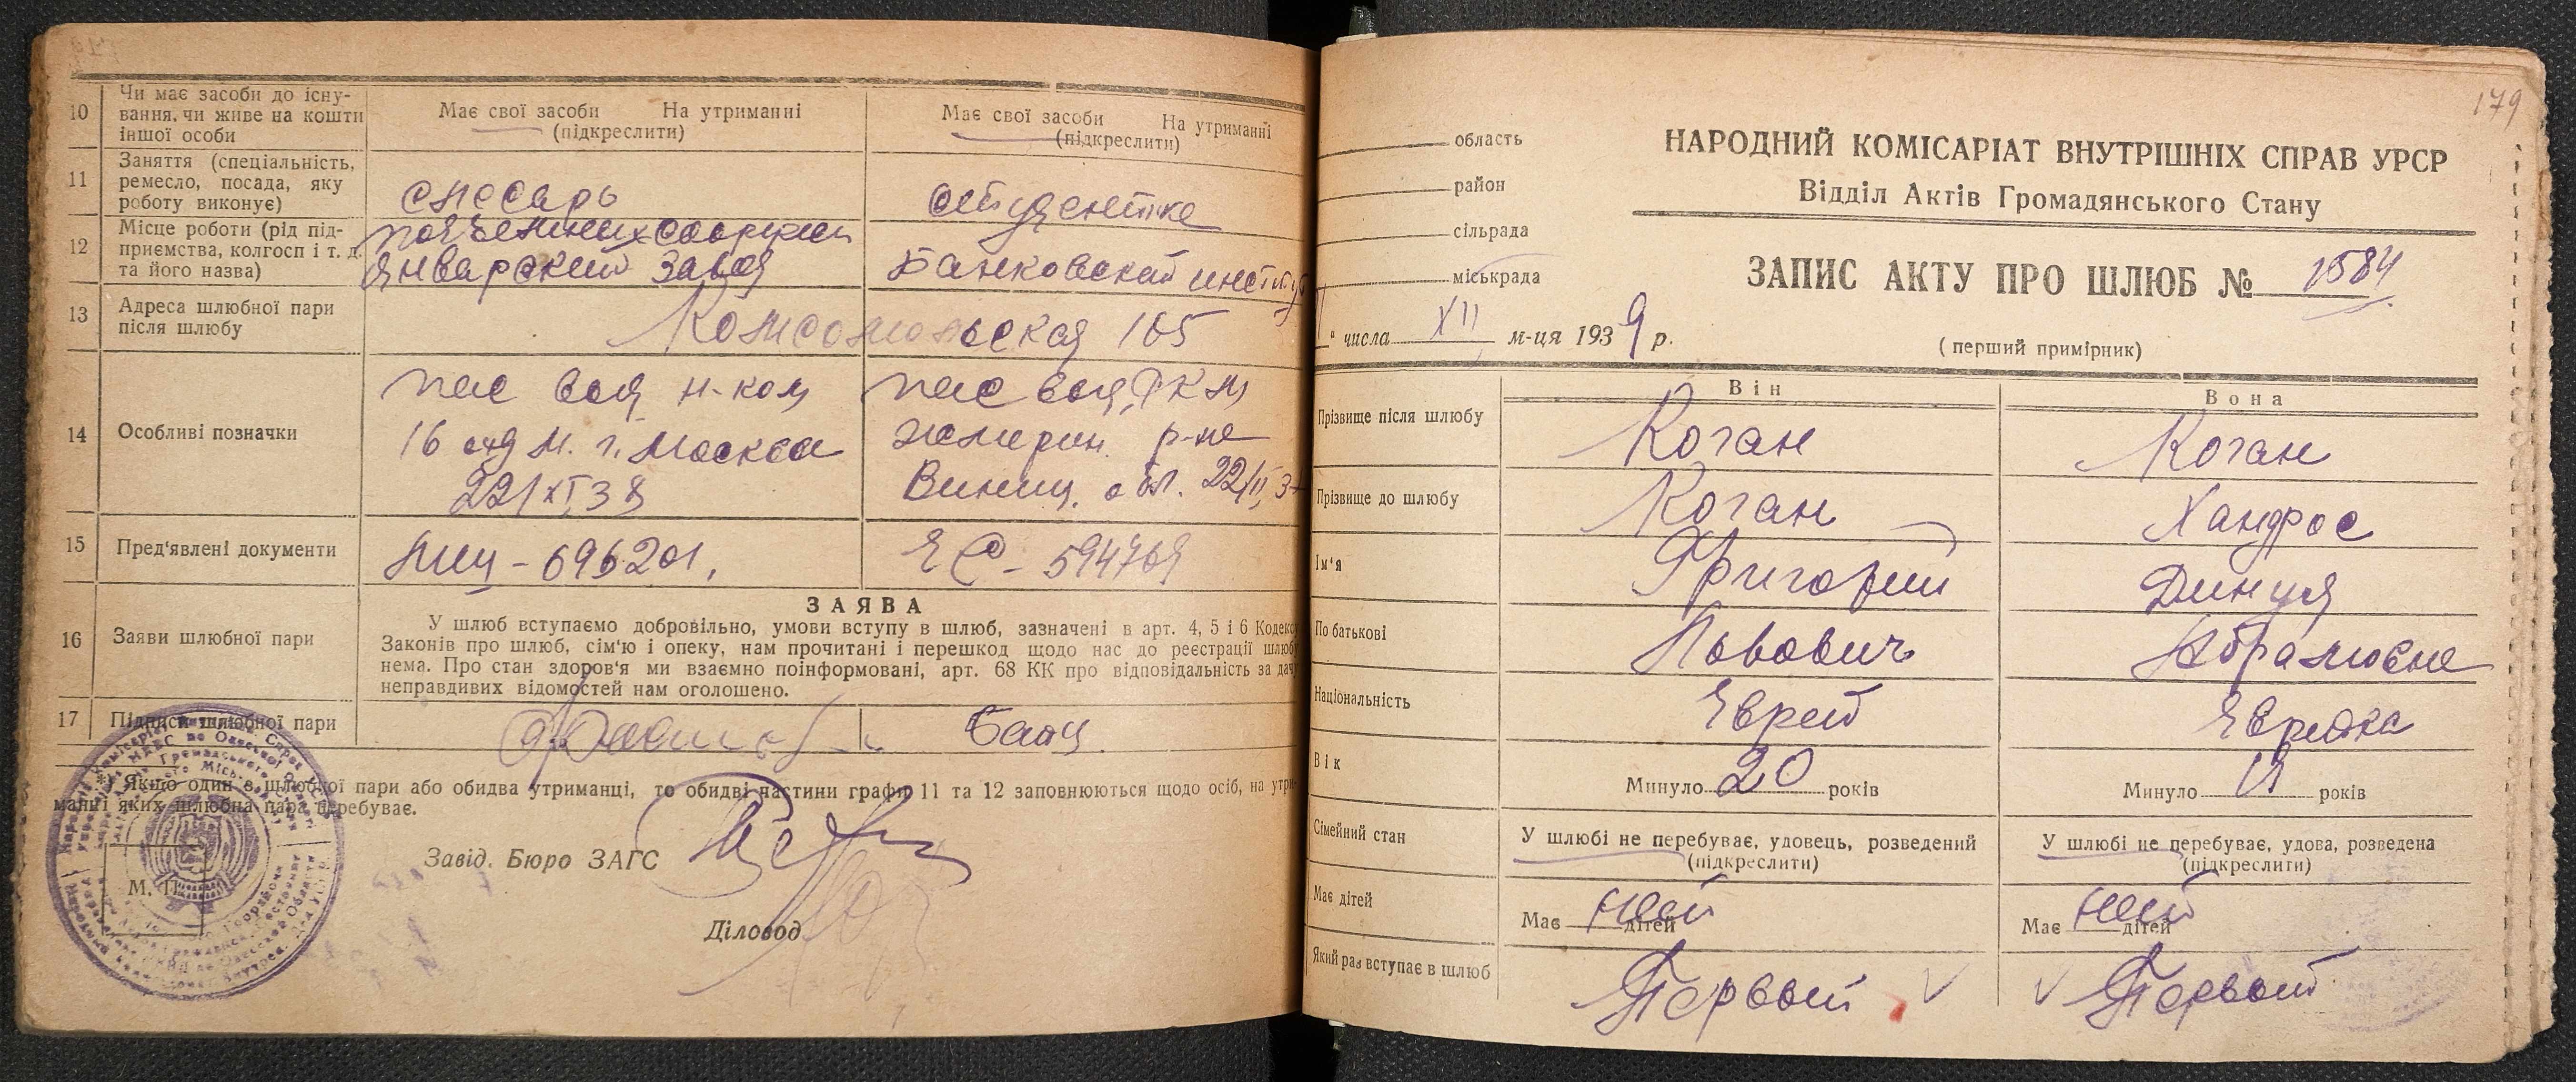 10
Чи має засоби до існу-
вання, чи живе на кошти
іншої особи
Має свої засоби На утриманні
(підкреслити)
Має свої засоби На утриманні
(підкреслити)
11
Заняття (спеціальність,
ремесло, посада, яку
роботу виконує)
слесарь
студентка
12
Місце роботи (рід під-
приємства, колгосп і т. д.
та його назва)
Январский завод
Банковский институт
13
Адреса шлюбної пари
після шлюбу
Комсомольская 105
14
Особливі позначки
пас выд н-ком
16 отд М. г. Москва
22/XI 38
пас выд. РКМ
жмерин. р-на
Винниц. обл. 22/II, 37
15
Пред'явлені документи
696201.
ЕС - 594769
16
Заяви шлюбної пари
ЗАЯВА
У шлюб вступаємо добровільно, умови вступу в шлюб, зазначені в арт. 4, 5 і 6 Кодексу
Законів про шлюб, сім'ю і опеку, нам прочитані і перешкод щодо нас до реєстрації шлюбу
нема. Про стан здоров'я ми взаємно поінформовані, арт. 68 КК про відповідальність за дачу
неправдивих відомостей нам оголошено.
17
Підписи шлюбної пари
*) Якщо один в шлюбної пари або обидва утриманці, то обидві частини графи 11 та 12 заповнюються щодо осіб, на утри-
манні яких шлюбна пара перебуває.
Завід. Бюро ЗАГС
М. П.
Діловод
179
область
район
сільрада
міськрада
НАРОДНИЙ КОМІСАРІАТ ВНУТРІШНІХ СПРАВ УРСР
Відділ Актів Громадянського Стану
ЗАПИС АКТУ ПРО ШЛЮБ № 1584
" числа XII м-ця 1939 р.
(перший примірник)
Він
Вона
Прізвище після шлюбу
Коган
Коган
Прізвище до шлюбу
Коган
Хандрос
Ім'я
Григорий
Динця
По батькові
Львович
Абрамовна
Національність
Еврей
Еврейка
Вік
Минуло 20 років
Минуло 19 років
Сімейний стан
У шлюбі не перебуває, удовець, розведений
(підкреслити)
У шлюбі не перебуває, удова, розведена
(підкреслити)
Має дітей
Має дітей
Має дітей
Який раз вступає в шлюб
Первый
Первый